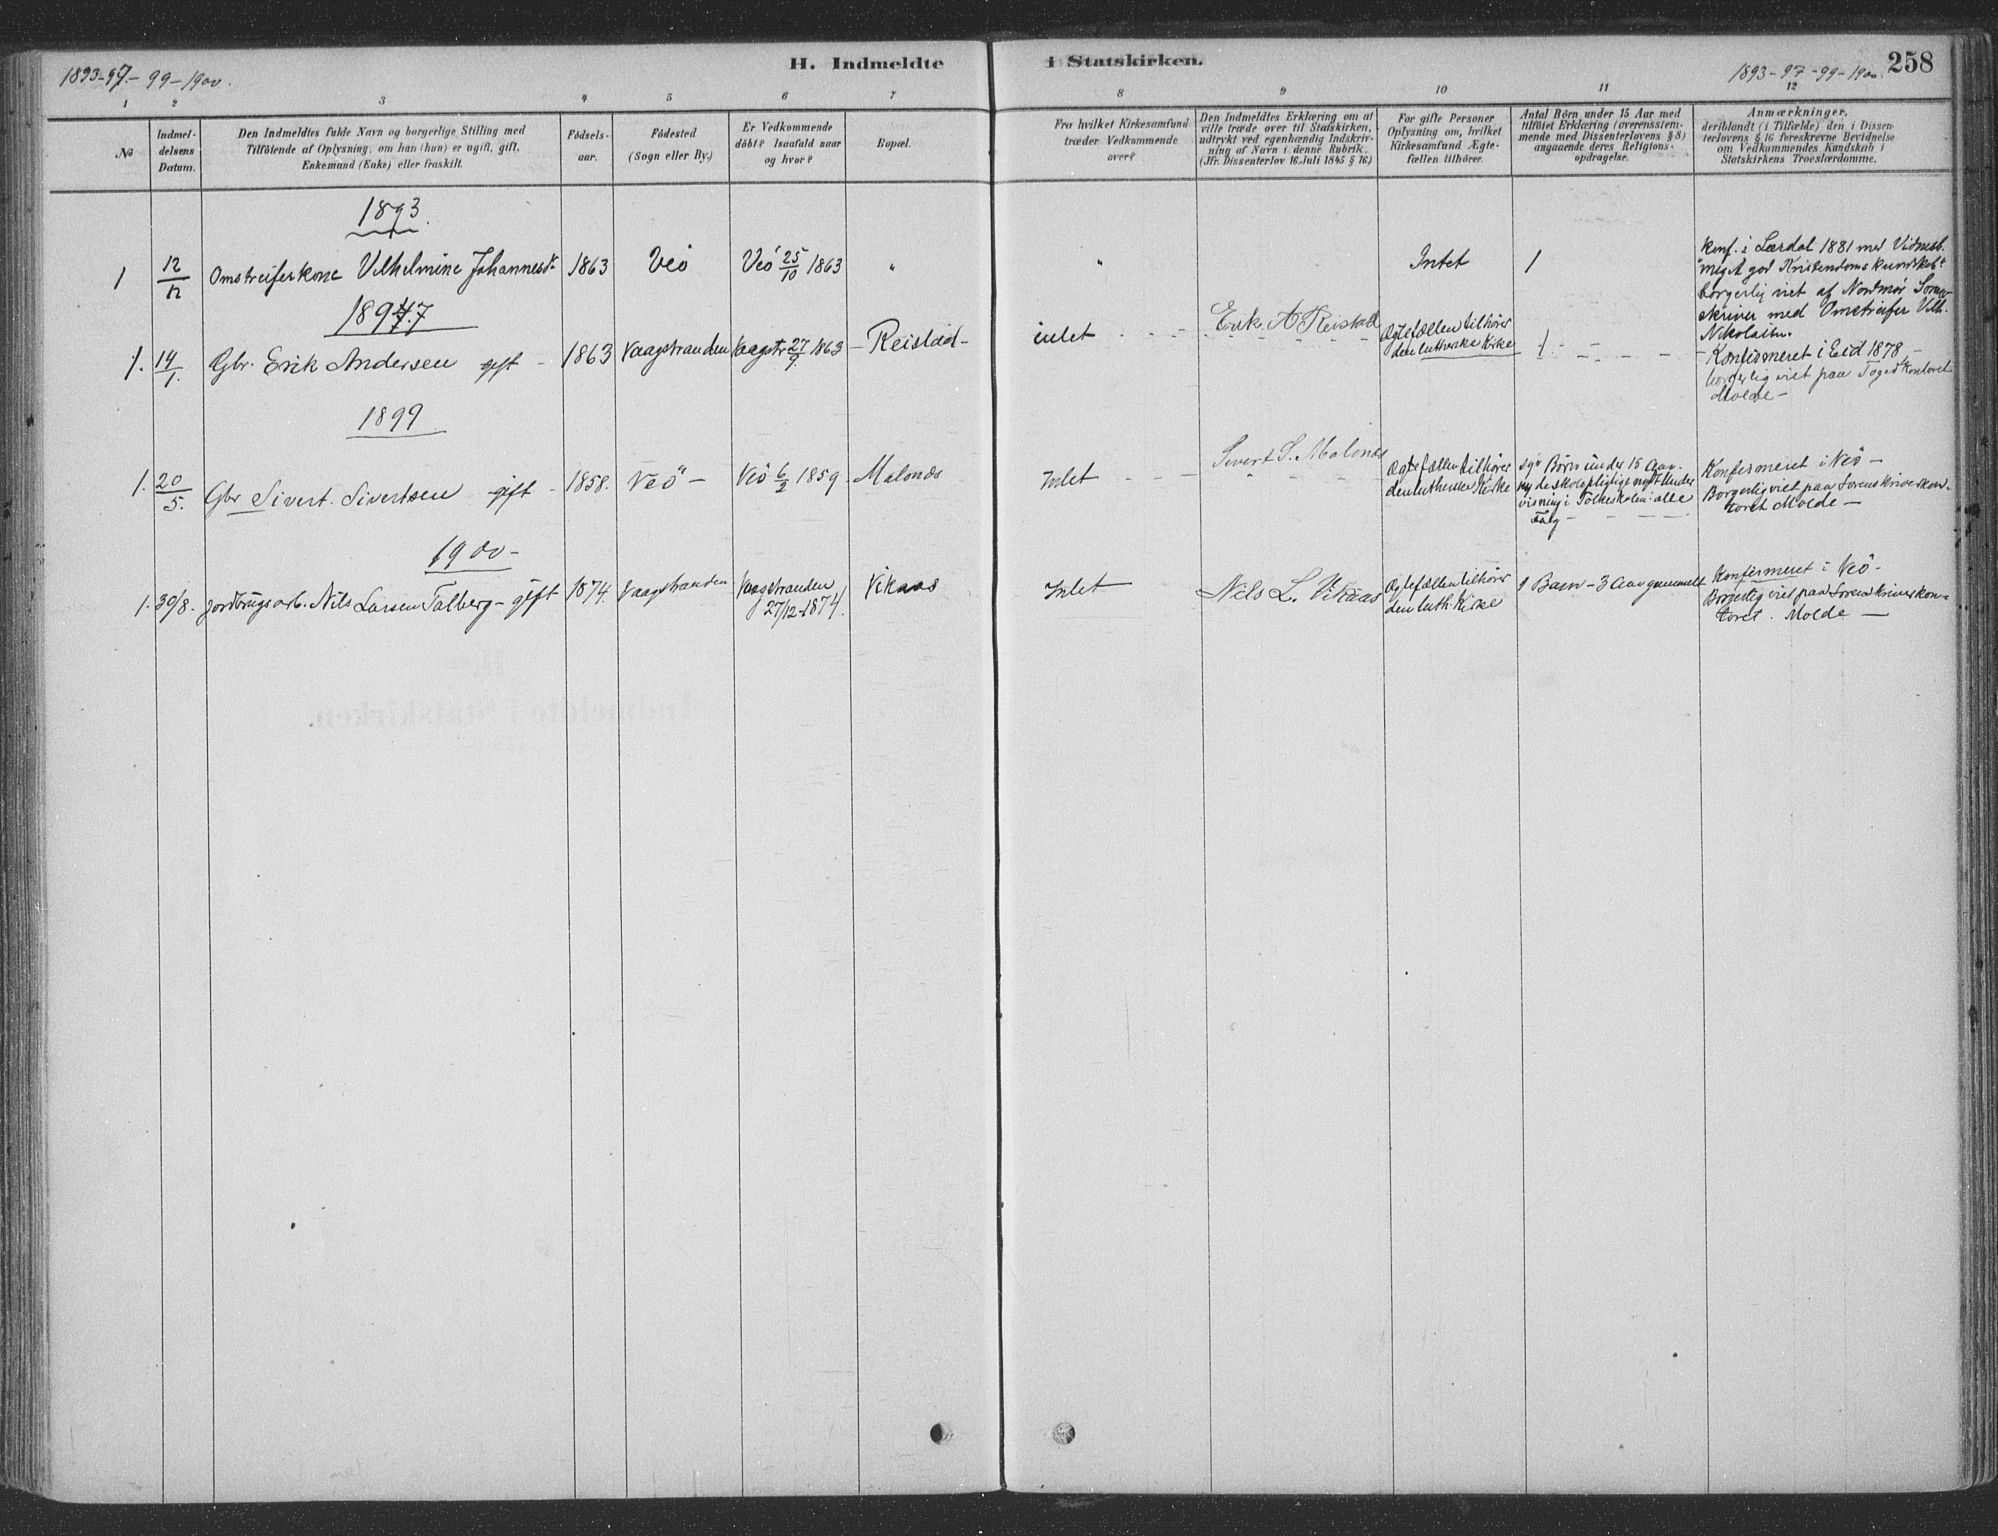 1893-97.-99-1900.
H. Indmeldte i Statskirken.
1893-97-99-1900.
258
1 2 3 4 5 6 7 8 9 10 11 12
No
Indmel-
delsens
Datum.
Den Indmeldtes fulde Navn og borgerlige Stilling med
Tilföiende af Oplysning, om han (hun) er ugift, gift,
Enkemand (Enke) eller fraskilt.
Födsels-
aar.
Födested
(Sogn eller By.)
Er Vedkommende
döbt? Isaafald naar
og hvor?
Bopæl.
Fra hvilket Kirkesamfund
træder Vedkommende
over?
Den Indmeldtes Erklæring om at
ville træde over til Statskirken,
udtrykt ved egenhændig Indskriv-
ning af Navn i denne Rubrik.
(Jfr. Dissenterlov 16. Juli 1845 § 16)
For gifte Personer
Oplysning om, hvilket
Kirkesamfund Ægte-
fællen tilhörer.
Antal Börn under 15 Aar med
tilföiet Erklæring (overensstem-
mende med Dissenterlovens § 8)
angaaende deres Religions-
opdragelse.
Anmærkninger,
deriblandt (i Tilfælde) den i Dissen-
terlovens § 16 foreskrevne Bevidnelse
om Vedkommendes Kundskab i
Statskirkens Troeslærdomme.
1893.
1 12/12 Omstreiferkone Vilhelmine Johannesdr 1863 Veö Veö 25/10 1863 " " Intet 1
konf. i Lærdal 1881 med Vidnesb.
"meget god Kristendomskundskab"
borgerlig viet af Nordmør Soren-
skriver med Omstreifer Vilh.
Nikolaisen.
1897
1. 14/1. Gbr. Erik Andersen gift - 1863 Vaagstranden Vaagstr 27/9. 1863 - Reistad - intet - - - Erik A Reistad
Ægtefællen tilhører
den lutherske Kirke
1 - - - -
- Konfirmeret i Eid 1878 -
borgerlig viet paa Fogedkontoret
Molde -
1899
1. 20/5. Gbr Sivert Sivertsen gift - 1858. Veö - Veö 6/2 1859 Malonæs Intet - - - Sivert S. Malonæs
Ægtefællen tilhører
den lutherske Kirke
syv Børn under 15 Aar.
de skolepligtige nydt Under
visning i Folkeskolen i alle
Fag - - - -
Konfirmeret i Veö -
Borgerlig viet paa Sorenskriverkon-
toret Molde -
1900 -
1. 30/8. Jordbrugsarb. Nils Larsen Talberg - gift 1874. Vaagstranden Vaagstranden
27/12-1874. Vikaas Intet Nils L. Vikaas
Ægtefællen tilhører
den luth. Kirke
1 Barn - 3 Aar gammelt
Konfirmeret i Veö -
Borgerlig viet paa Sorenskriverkon-
toret. Molde -